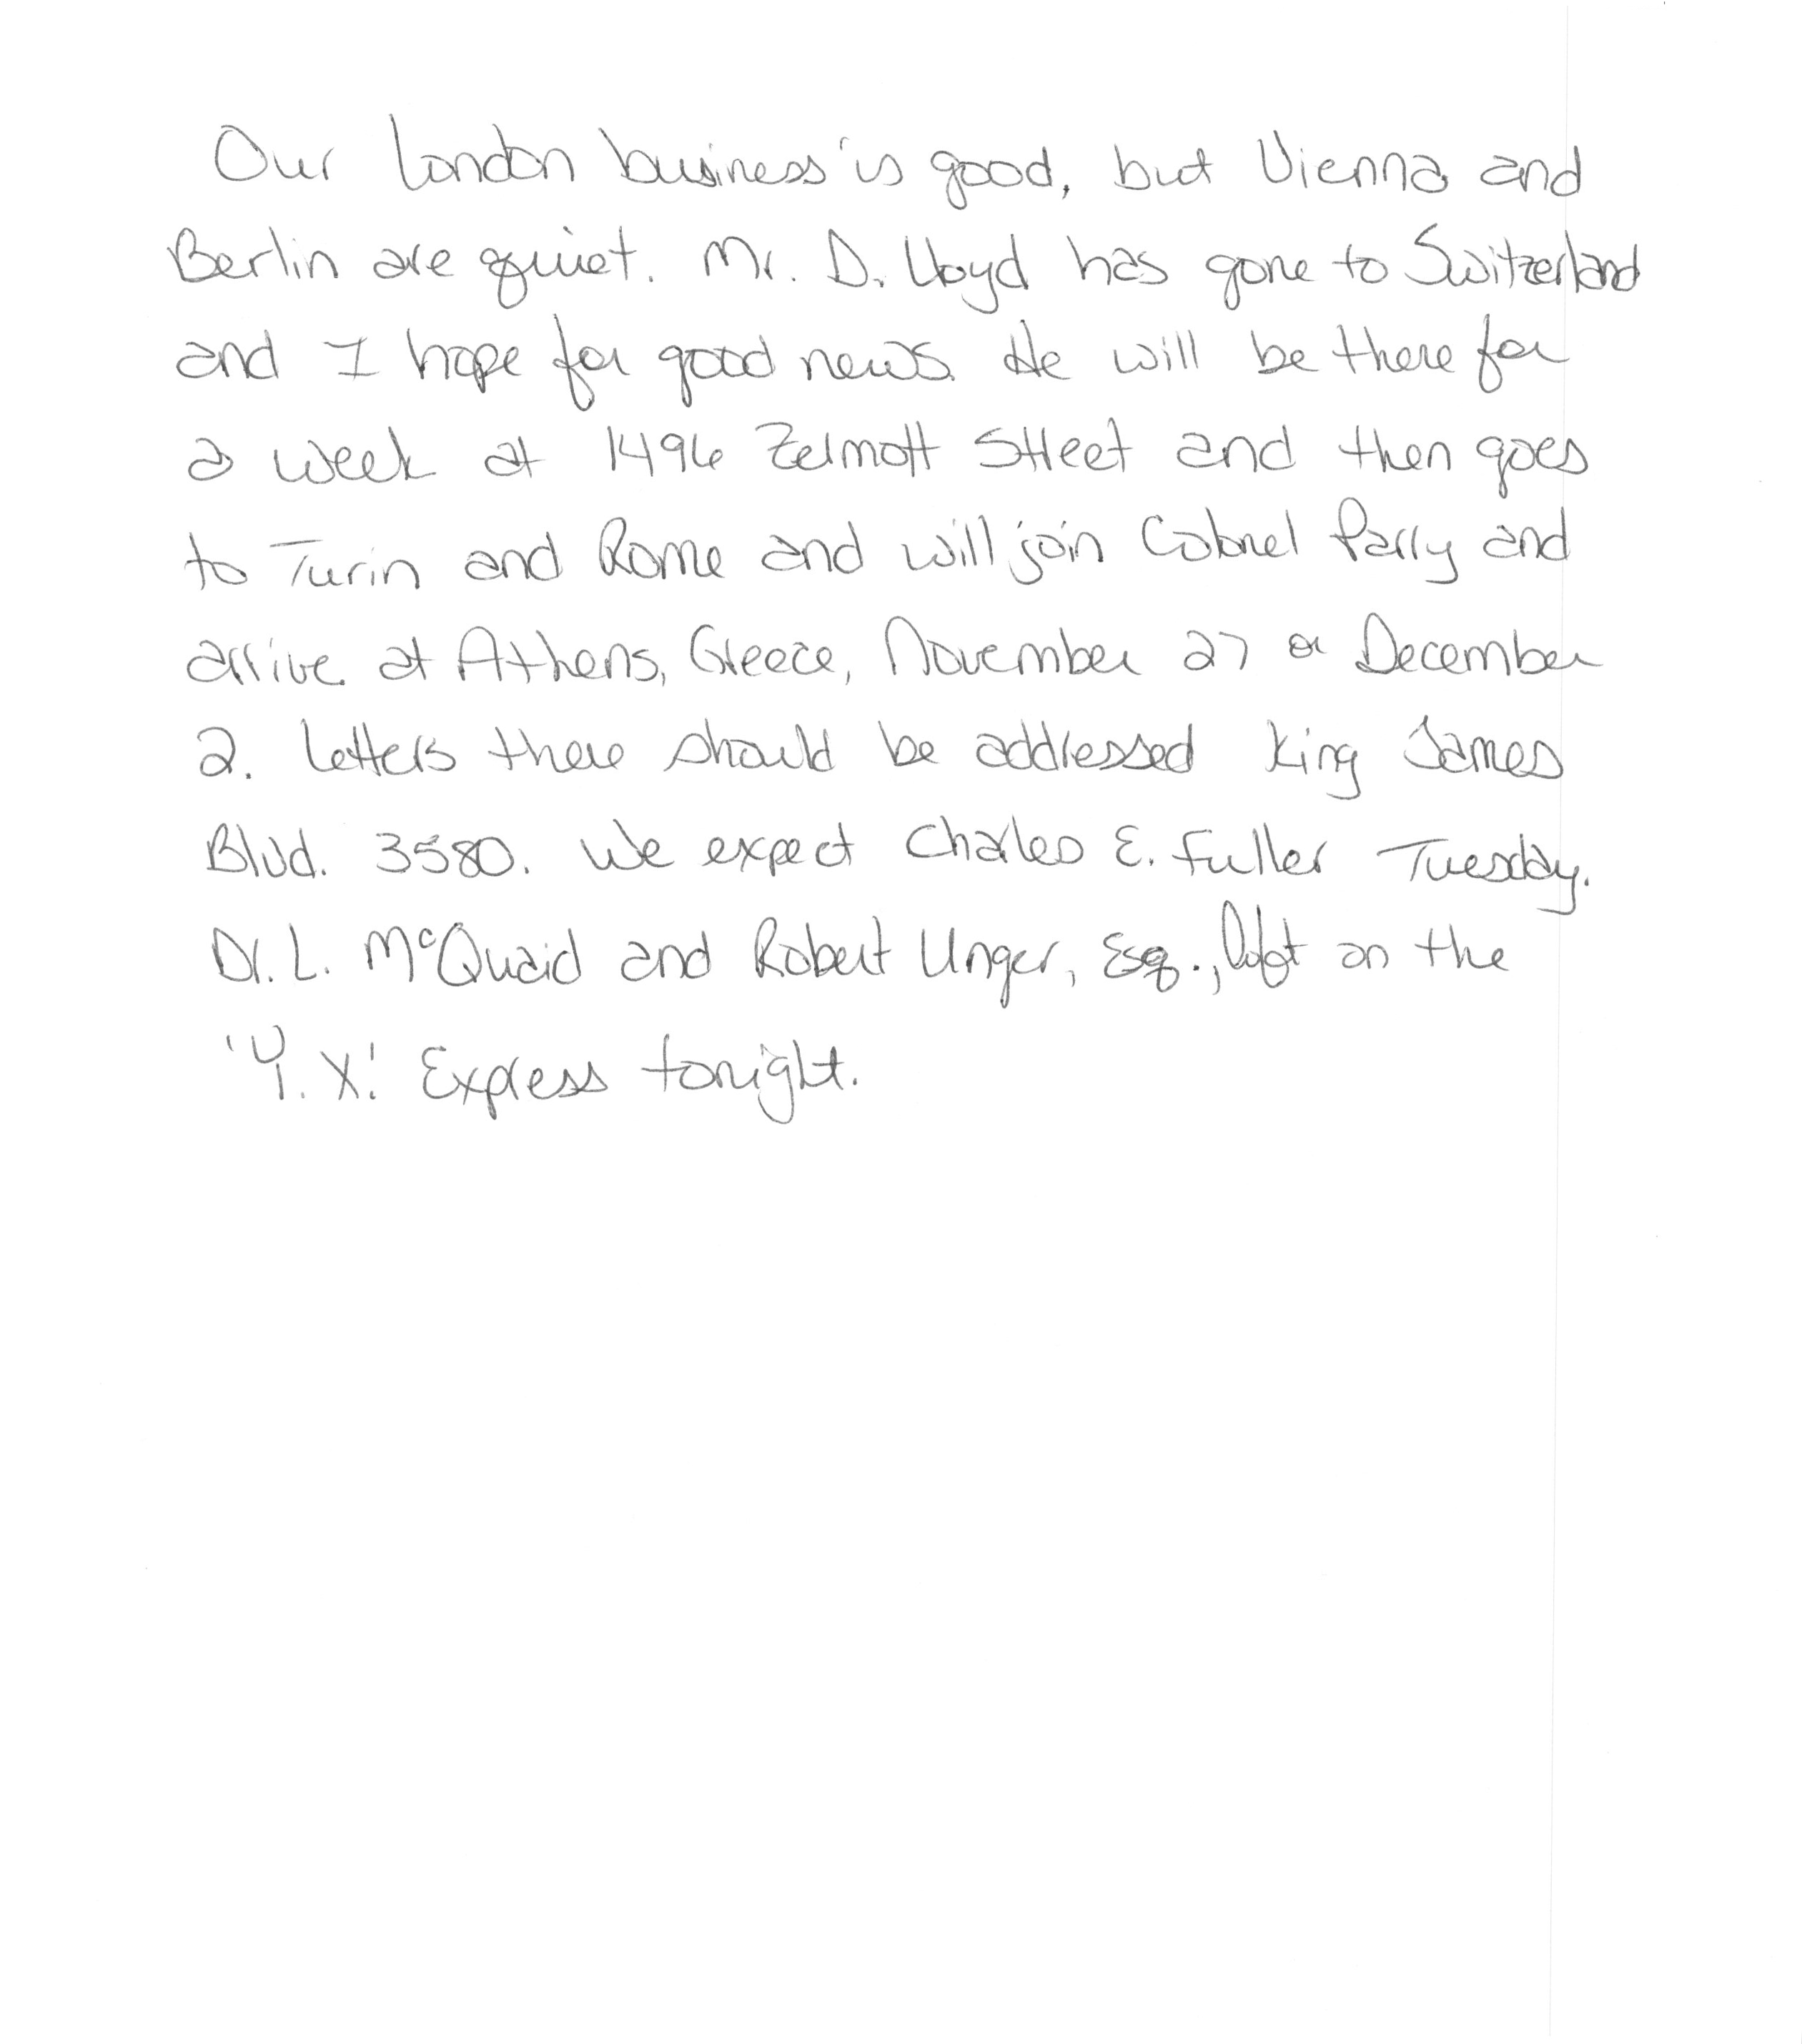 Our London business is good, but Vienna and
Berlin are quiet. Mr. D. Lloyd has gone to Switzerland
and I hope for good news. He will be there for
a week at 1496 Zermott Street and then goes
to Turin and Rome and will join Colonel Parry and
arrive at Athens, Greece, November 27 or December
2. Letters there should be addressed King James
Blvd. 3580. We expect Charles E. Fuller Tuesday.
Dr. L. McQuaid and Robert Unger, Esq., left on the
'Y. X.' Express tonight.